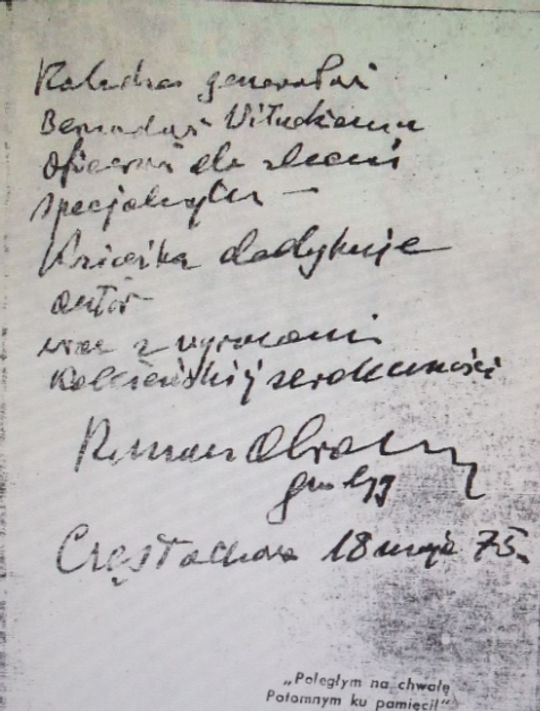 generałowi
Bernardowi
Oficerowi do zleceń
specjalnych —
Książkę dedykuje
autor
wraz z wyrazami
koleżeńskiej serdeczności
Roman Abraham
gen bryg
Częstochowa 18 maja 75.
„Poległym na chwałę
Potomnym ku pamięci!"